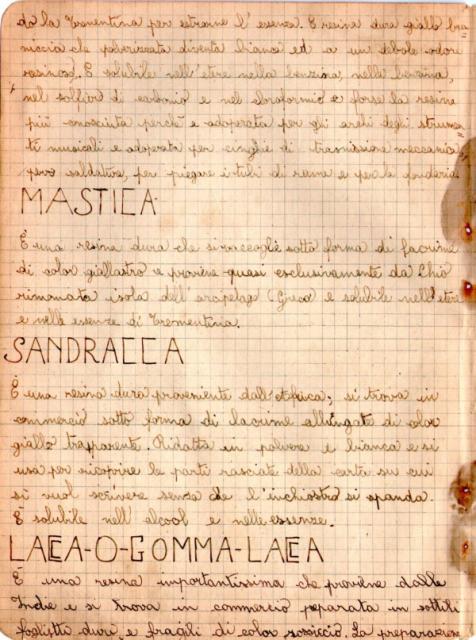 do la Trementina per estrarne l'essenza. È resina dura giallo bru=
niccia che polverizzata diventa bianca ed a un debole odore
resinoso. È solubile nell'etere nella benzina, nella
nel solfuro di carbonio e nel cloroformio e forse la resina
più conosciuta perchè è adoperata per gli archi degli strumen=
ti musicali e adoperata per cinghie di trasmissione meccanica
pero saldatura, per piegare i tubi di rame e per le fonderie
MASTICA
È una resina dura che si raccoglie sotto forma di lacrime
di color giallastro e proviene quasi esclusivamente da Chio
rinomata isola dell'arcipelago (Greco) e solubile nell'etere
e nelle essenze di Trementina.
SANDRACCA
È una resina dura proveniente dall'Africa; si trova in
commercio sotto forma di lacrime allungate di color
giallo trasparente. Ridotta in polvere e bianca e si
usa per ricoprire le parti rasciate della carta su cui
si vuol scrivere senza che l'inchiostro si spanda.
È solubile nell'alcool e nelle essenze.
LACCA-O-GOMMA-LACCA
È una resina importantissima che proviene dalle
Indie e si trova in commercio preparata in sottili
foglietti duri e fragili di color rossiccio La preparazio